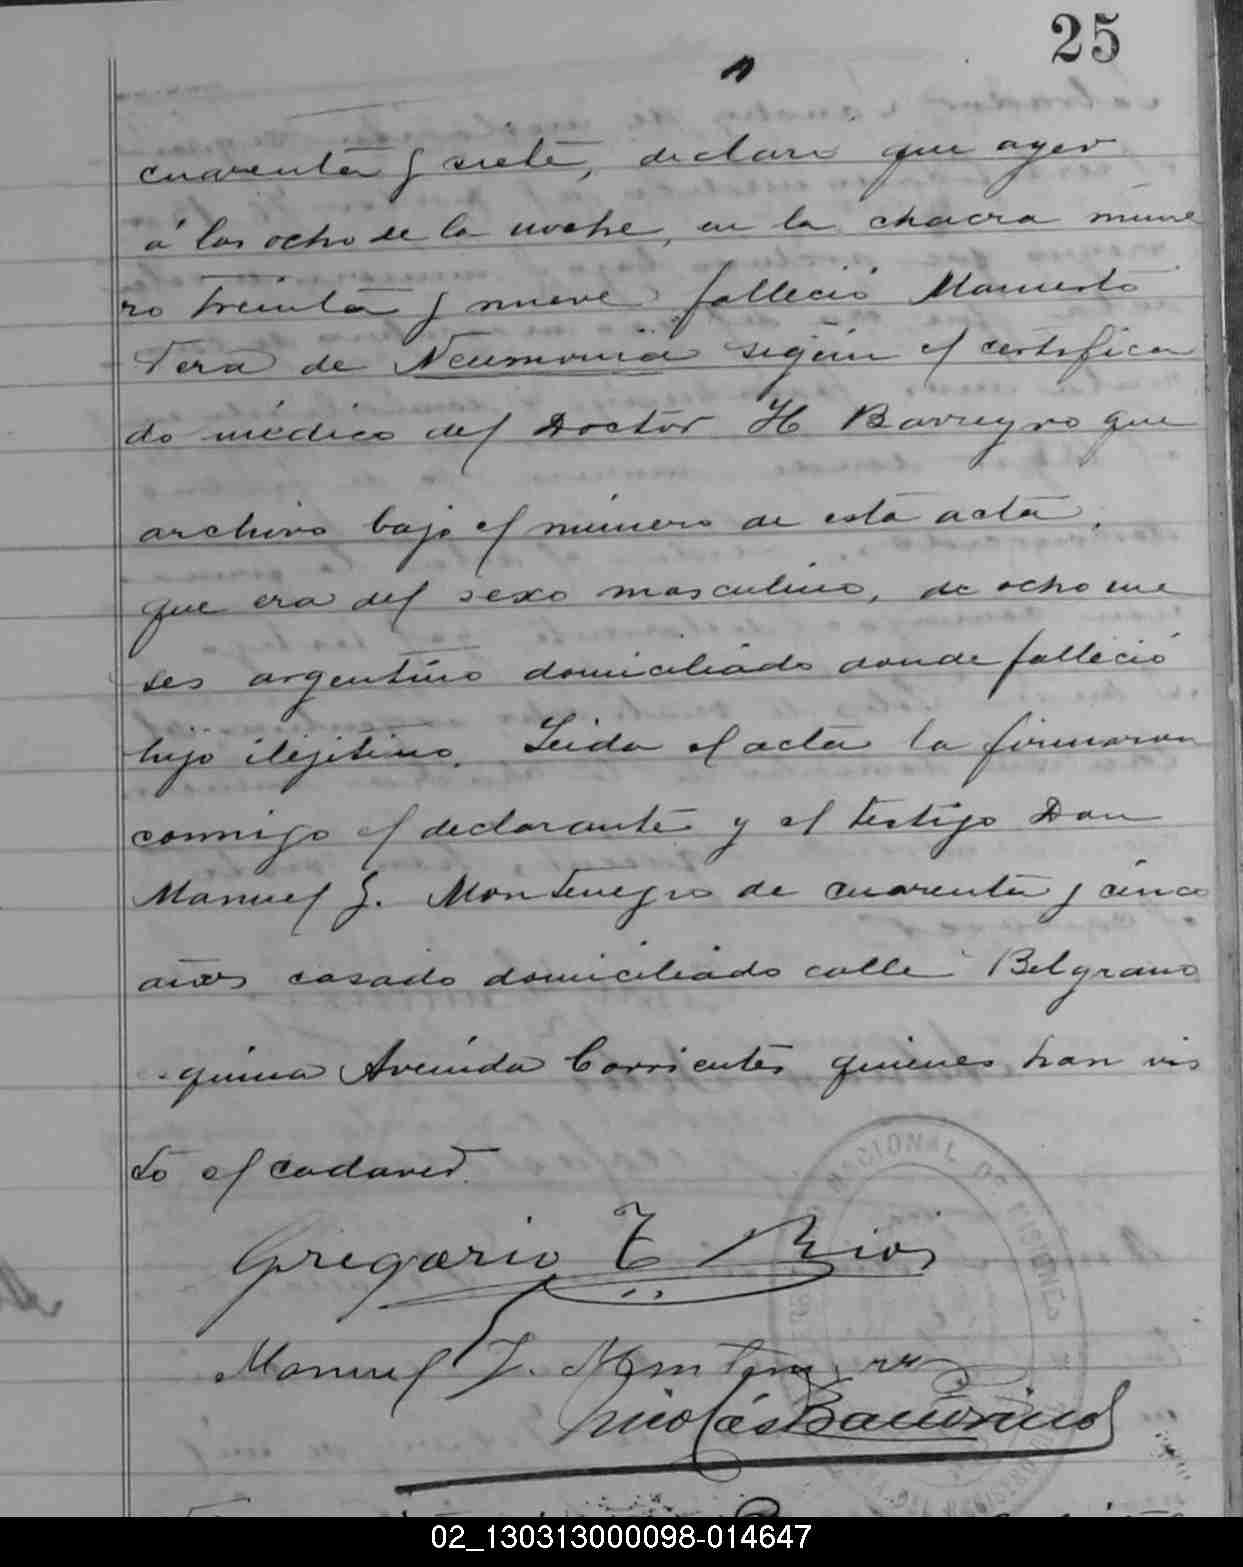 25
cuarenta y siete, declaró que ayer
á las ocho de la noche, en la chacra núme
ro treinta y nueve falleció Mamerto
Vera de Neumonia según el certifica
do médico del Doctor H Barreyro que
archivo bajo el número de esta acta,
que era del sexo masculino, de ocho me
ses argentino domiciliado donde falleció
hijo ilejitimo. Leida el acta la firmaron
conmigo el declarante y el testigo Don
Manuel J. Montenegro de cuarenta y cinco
años casado domiciliado calle Belgrano
quina Avenida Corrientes quienes han vis
to el cadaver.
Gregorio T Rios
Manuel J. Montenegro
Nicolás
02_130313000098-014647